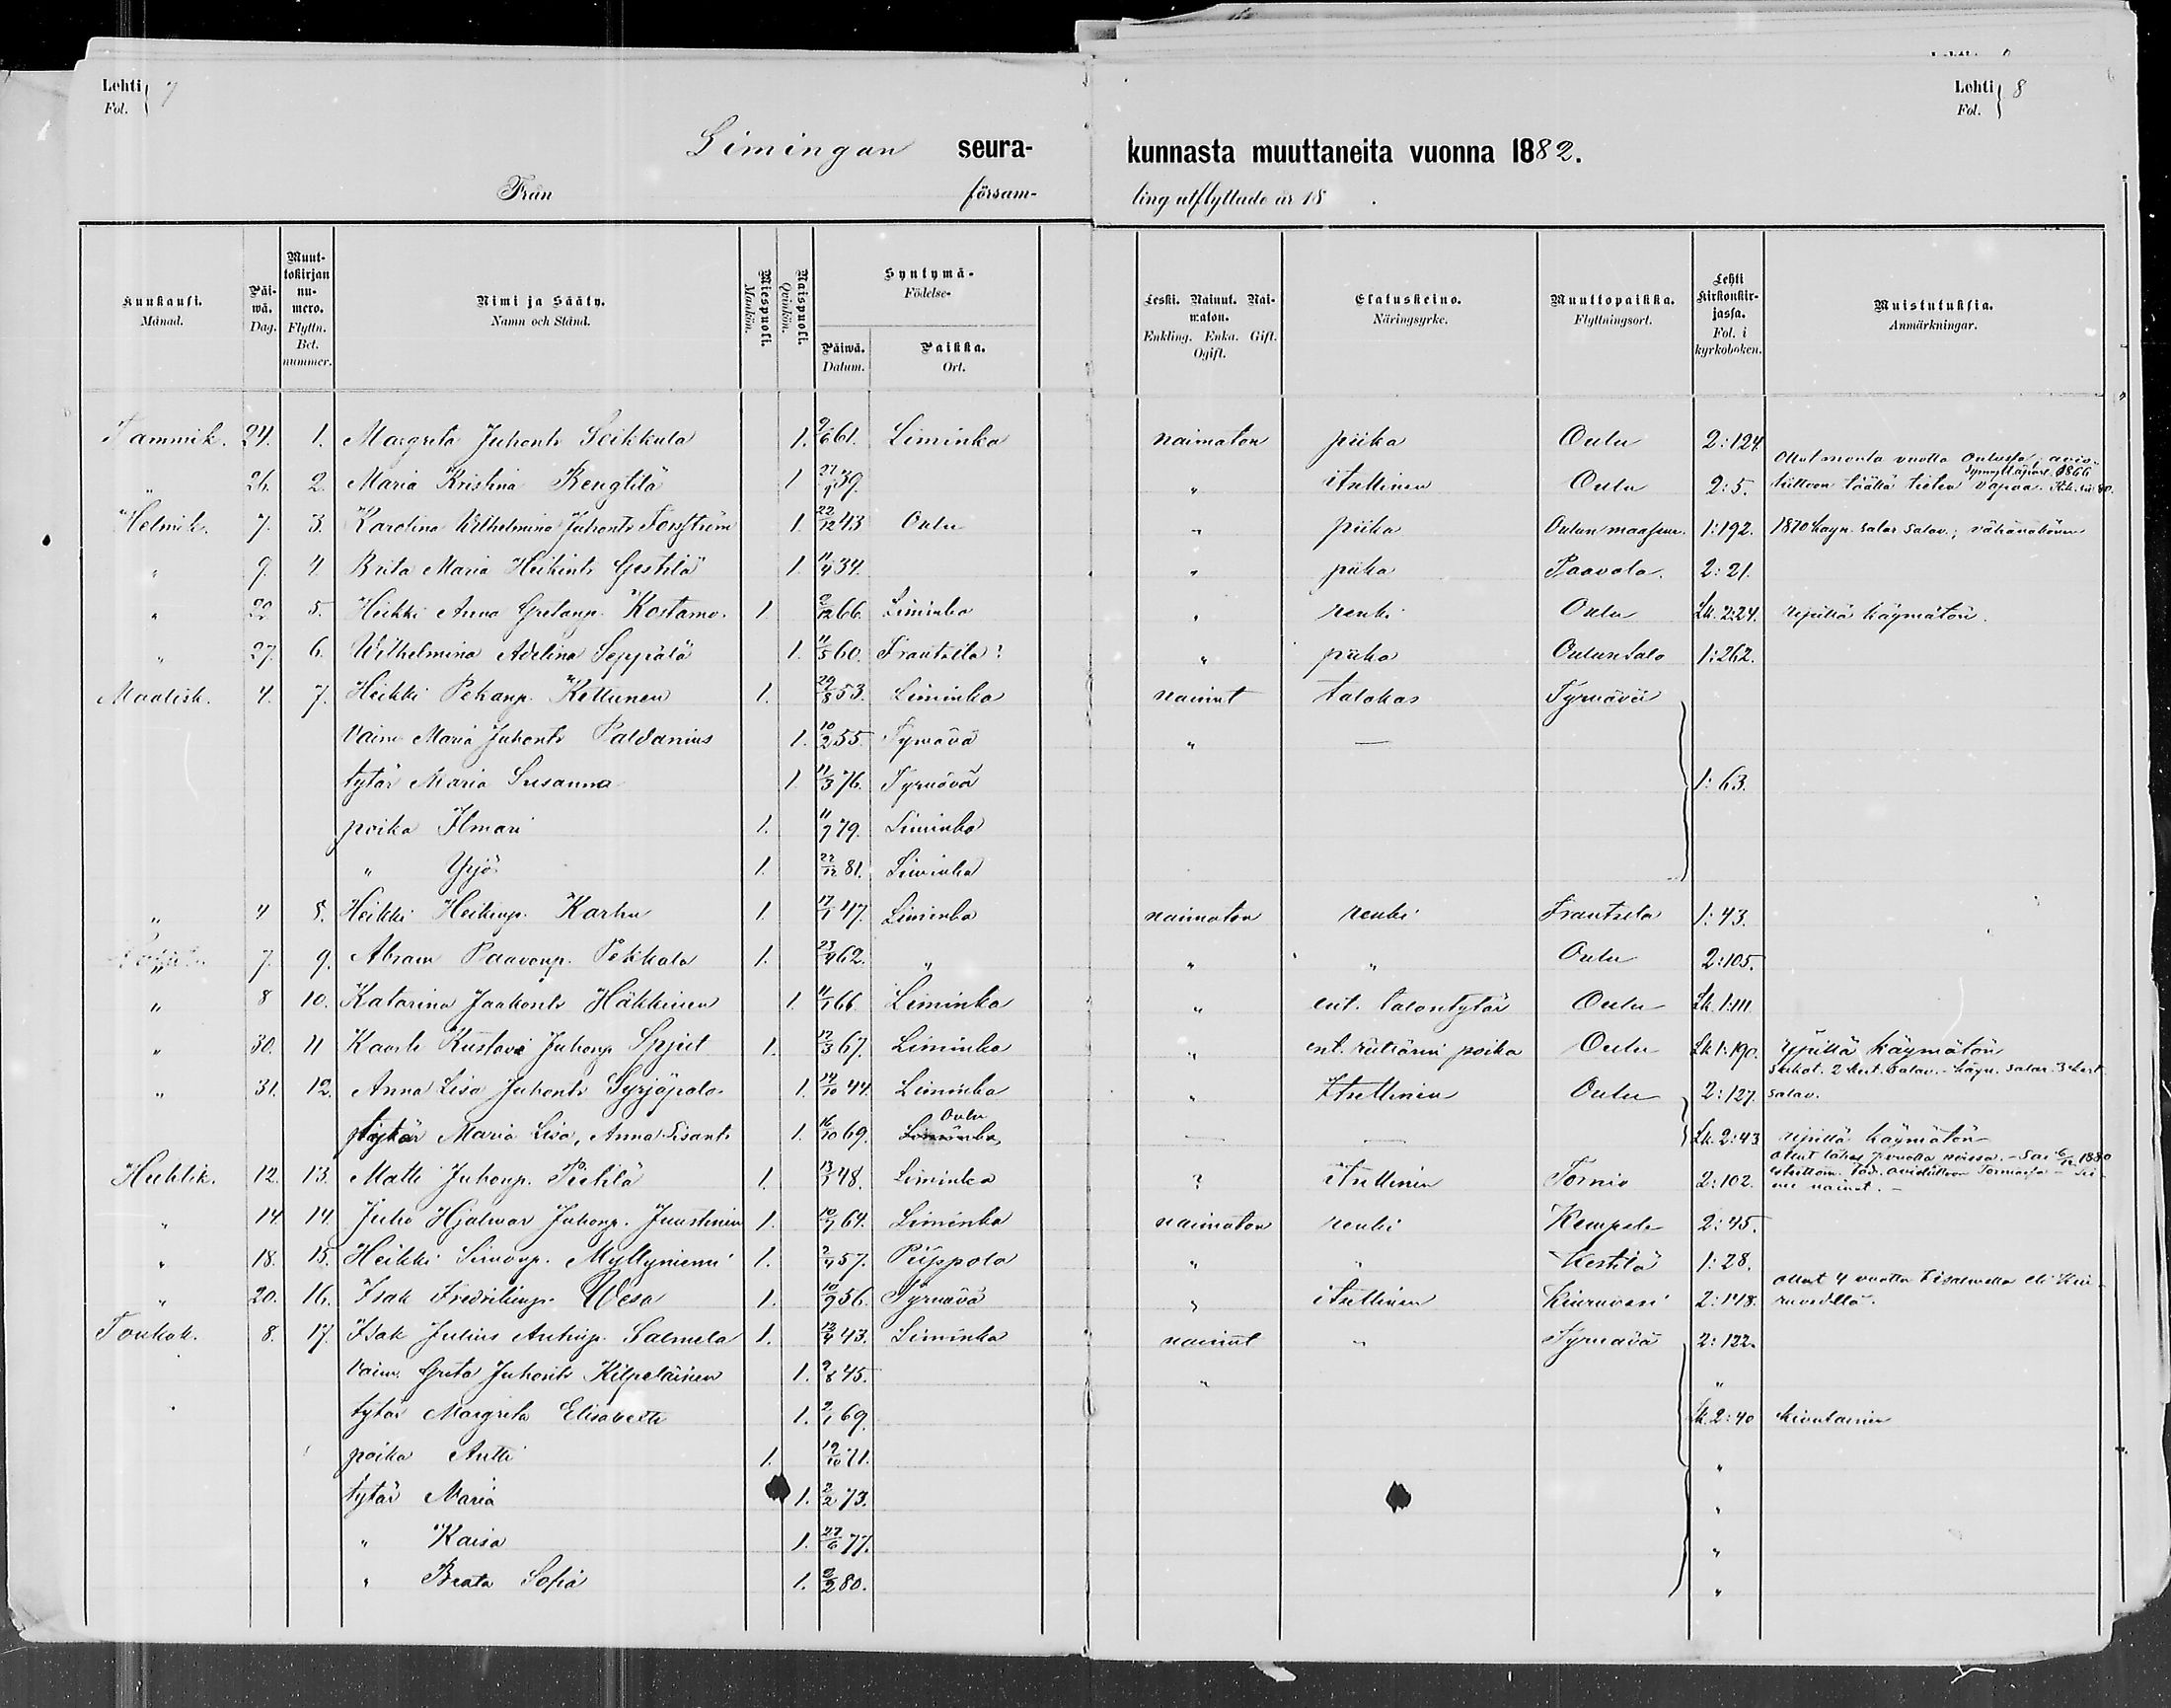 Lehti 7
Fol.
Lehti 8
Fol.
Limingan seura-
kunnasta muuttaneita vuonna 1882.
Från försam-
ling utflyttade år 18 .
Kuukausi. Månad.
Päiwä. Dag.
Muuttokirjan numero. Flyttn. Bet. nummer.
Nimi ja Sääty. Namn och Stånd.
Miespuoli. Mankön.
Naispuoli. Qvinkön.
Syntymä- Födelse-
Päiwä. Datum.
Paikka. Ort.
Leski. Nainut. Naimaton. Enkling. Enka. Gift. Ogift.
Elatuskeino. Näringsyrke.
Muuttopaikka. Flyttningsort.
Lehti kirkonkirjassa. Fol. i kyrkoboken.
Muistutuksia. Anmärkningar.
Tammik. 24. 1. Margreta Juhont. Seikkula 1. 9/6 61. Liminka naimaton piika Oulu 2:124
" 26. 2. Maria Kristina Bengtilä 1 39. " itsellinen Oulu 2:5.
Helmik. 7. 3. Karolina Wilhelmina Juhont. 1. 22/12 43 Oulu " piika Oulun maaseur. 1:192.
" 9. 4. Brita Maria Heikint. Gestilä 1. 11/4 34. " piika Paavola. 2:21.
" 22 5. Heikki Anna Gretanp. Kostamo. 1. 2/12 66. Liminka " renki Oulu Lk. 2:224. ripillä käymätön.
" 27. 6. Wilhelmina Adelina Seppälä 1. 11/5 60. Frantsila? " piika Oulunsalo 1:262.
Maalisk. 4. 7. Heikki Pekanp. Kettunen 1. 29/8 53. Liminka nainut talokas Tyrnävä
Vaim. Maria Juhont. Paldanius 1. 10/2 55. Tyrnävä " —
tytär Maria Susanna 1 11/3 76. Tyrnävä 1:63.
poika Ilmari 1. 11/7 79. Liminka
" Yrjö 1. 22/12 81. Liminka
" 4 8. Heikki Heikinp. Karhu 1. 17/1 47. Liminka naimaton renki Frantsila 1:43.
" 7. 9. Abram Paavonp. Pekkala 1. 23/4 62. " " " Oulu 2:105.
" 8 10. Katarina Jaakont. Häkkinen 1. 11/1 66. Liminka " ent. talontytär Oulu Lk. 1:111.
" 30. 11 Kaarle Kustavi Juhonp. 1. 12/3 67. Liminka " ent. poika Oulu Lk 1:190. ripillä käymätön
" 31. 12. Anna Lisa Juhont. Syrjäpalo 1. 14/10 44. Liminka " Itsellinen Oulu 2:127. salav.
tytär Maria Lisa, Anna Lisant. 1. 16/10 69. Oulu — — Lk. 2:43 ripillä käymätön
Huhtik. 12. 13. Matti Juhonp. Pietilä 1. 13/3 48. Liminka ? itsellinen Tornio 2:102.
" 14. 14. Juho Hjalmar Juhonp. Juustinen 1. 10/7 64. Liminka naimaton renki Kempele 2:45.
" 18. 15. Heikki Simonp. Myllyniemi 1. 2/4 57. Piippola " " Kestilä 1:28.
" 20. 16. Isak Fredrikinp. Wesa 1. 10/9 56. Tyrnävä " itsellinen Kiuruvesi 2:148. ollut 4 vuotta Iisalmella eli Kiuruvedellä.
Toukok. 8. 17. Isak Julius Antinp. Salmela 1. 12/4 43. Liminka nainut " Tyrnävä 2:122.
Vaim. Greta Juhont. Kilpeläinen 1. 9/8 45. " "
tytär Margreta Elisabeth 1. 2/1 69. Lk. 2:40 kivulainen
poika Antti 1. 19/10 71. "
tytär Maria 1. 2/2 73. "
" Kaisa 1. 27/6 77. "
" Beata Sofia 1. 2/2 80. "